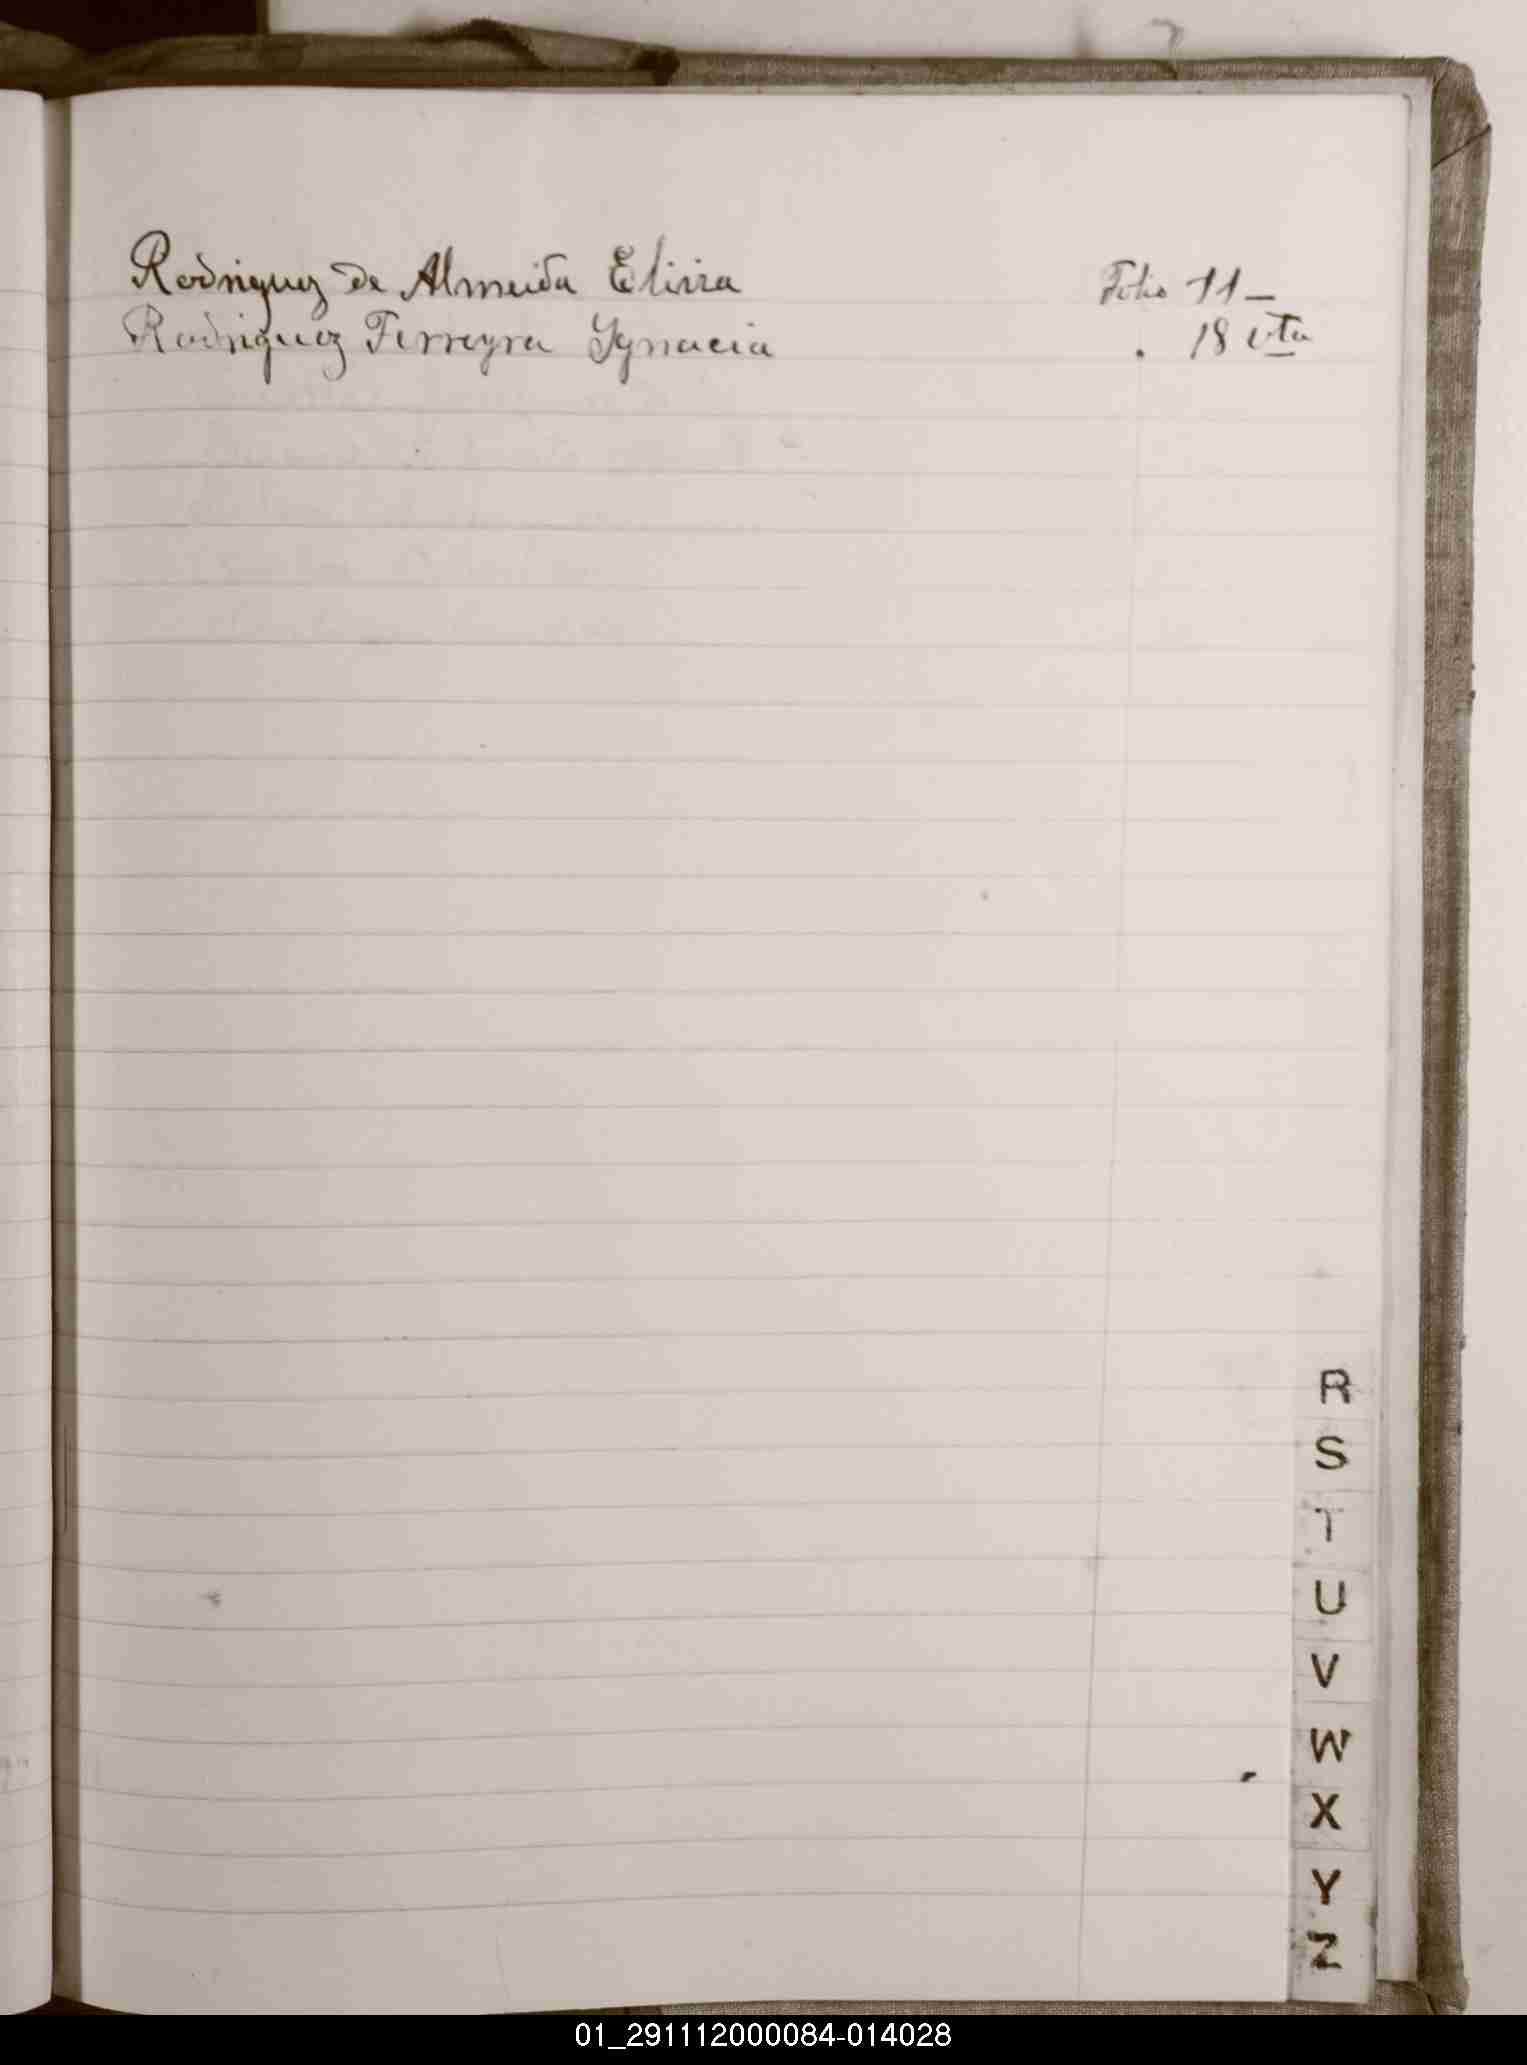 Rodriguez de Almeida Elvira Folio 11 —
Rodriguez Ferreyra Ygnacia . 18 vta
R
S
T
U
V
W
X
Y
Z
01_291112000084-014028